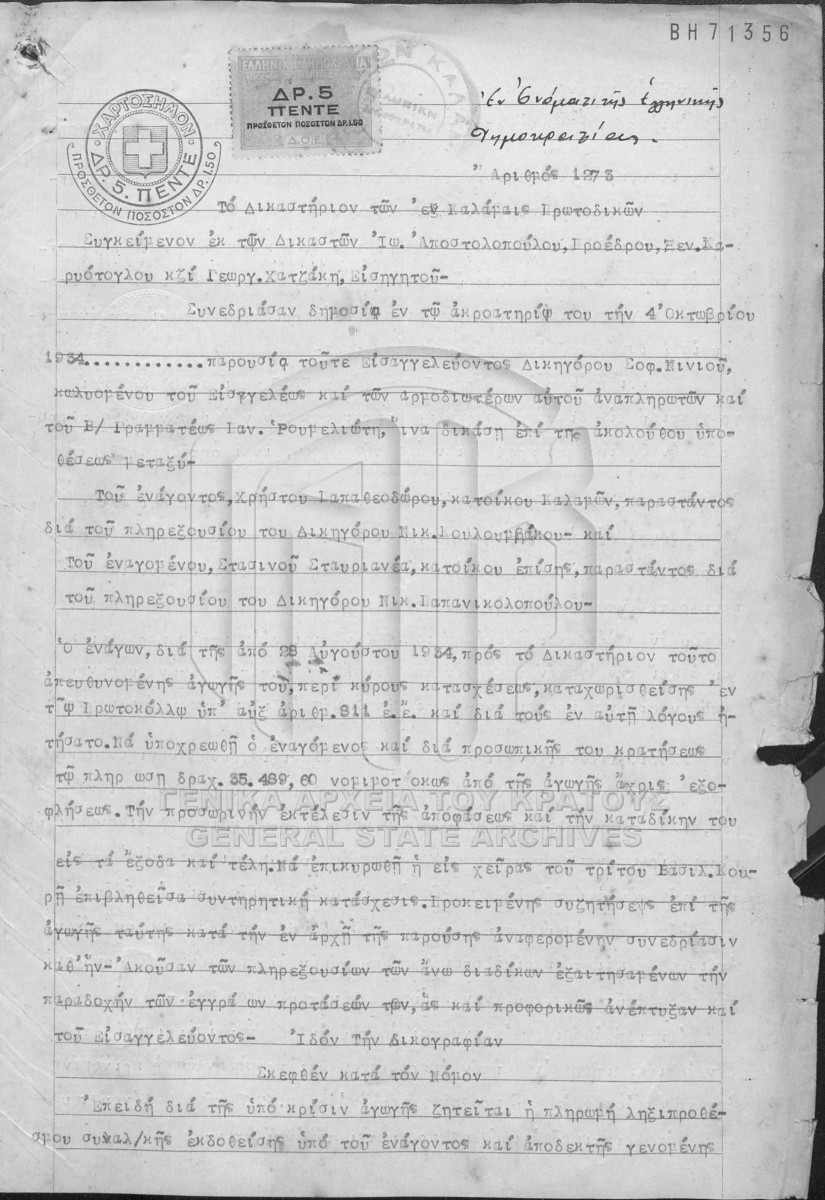 ΒΗ 71356
ΕΛΛΗΝΙΚΗ ΔΗΜΟΚΡΑΤΙΑ
ΔΡ. 5
ΠΕΝΤΕ
ΠΡΟΣΘΕΤΟΝ ΠΟΣΟΣΤΟΝ ΔΡ. 1.50
Δ.Ο.Ε.
ΧΑΡΤΟΣΗΜΟΝ
ΔΡ. 5. ΠΕΝΤΕ
ΠΡΟΣΘΕΤΟΝ ΠΟΣΟΣΤΟΝ ΔΡ. 1.50
Ἐν Ὀνόματι τῆς Ἑλληνικῆς
Δημοκρατίας.
Ἀριθμός 1273
Τό Δικαστήριον τῶν ἐν Καλάμαις Πρωτοδικῶν
Συγκείμενον ἐκ τῶν Δικαστῶν Ἰω. Ἀποστολοπούλου, Προέδρου, Ξεν. Κα-
ρυότογλου κζί Γεωργ. Χατζάκη, Εἰσηγητοῦ-
Συνεδριάσαν δημοσίᾳ ἐν τῷ ἀκροατηρίῳ του τήν 4 Ὀκτωβρίου
1934............παρουσίᾳ τοῦτε Εἰσαγγελεύοντος Δικηγόρου Σοφ. Νινιοῦ,
κωλυομένου τοῦ Εἰσγγελέως καί τῶν αρμοδιωτέρων αὐτοῦ ἀναπληρωτῶν καί
τοῦ Β/ Γραμματέως Παν. Ῥουμελιώτη, ἵνα δικάσῃ ἐπί τῆς ἀκολούθου ὑπο-
θέσεως μεταξύ-
Τοῦ ἐνάγοντος, Χρήστου Παπαθεοδώρου, κατοίκου Καλαμῶν, παραστάντος
διά τοῦ πληρεξουσίου του Δικηγόρου Νικ. Κουλουμβάκου- καί
Τοῦ ἐναγομένου, Στασινοῦ Σταυριανέα, κατοίκου ἐπίσης, παραστάντος διά
τοῦ πληρεξουσίου του Δικηγόρου Νικ. Παπανικολοπούλου-
Ὁ ἐνάγων, διά τῆς ἀπό 28 Αὐγούστου 1934, πρός τό Δικαστήριον τοῦτο
ἀπευθυνομένης ἀγωγῆς του, περί κύρους κατασχέσεως, καταχωρισθείσης ἐν
τῷ Πρωτοκόλλῳ ὑπ' αὐξ ἀριθμ. 811 ἐ. ἔ. καί διά τούς ἐν αὐτῇ λόγους ἠ-
τήσατο. Νά ὑποχρεωθῇ ὁ ἐναγόμενος καί διά προσωπικῆς του κρατήσεως
τῷ πληρ ωση δραχ. 35.489,60 νομιμοτ όκως ἀπό τῆς ἀγωγῆς ἄχρις ἐξο-
φλήσεως. Τήν προσωρινήν ἐκτέλεσιν τῆς ἀποφάσεως καί τήν καταδίκην του
ΓΕΝΙΚΑ ΑΡΧΕΙΑ ΤΟΥ ΚΡΑΤΟΥΣ
GENERAL STATE ARCHIVES
εἰς τά ἔξοδα καί τέλη. Νά ἐπικυρωθῇ ἡ εἰς χεῖρας τοῦ τρίτου Βασιλ. Κου-
ρῆ ἐπιβληθεῖσα συντηρητική κατάσχεσις. Προκειμένης συζητήσεως ἐπί τῆς
ἀγωγῆς ταύτης κατά τήν ἐν ἀρχῇ τῆς παρούσης ἀναφερομένην συνεδρίασιν
καθ'ἥν- Ἀκοῦσαν τῶν πληρεξουσίων τῶν ἄνω διαδίκων ἐξαιτησαμένων τήν
παραδοχήν τῶν ἐγγρά ων προτάσεών των, ἅς καί προφορικῶς ἀνέπτυξαν καί
τοῦ Εἰσαγγελεύοντος- Ἰδόν Τήν Δικογραφίαν
Σκεφθέν κατά τόν Νόμον
Ἐπειδή διά τῆς ὑπό κρίσιν ἀγωγῆς ζητεῖται ἡ πληρωμή ληξιπροθέ-
σμου συναλ/κῆς ἐκδοθείσης ὑπό τοῦ ἐνάγοντος καί ἀποδεκτῆς γενομένης